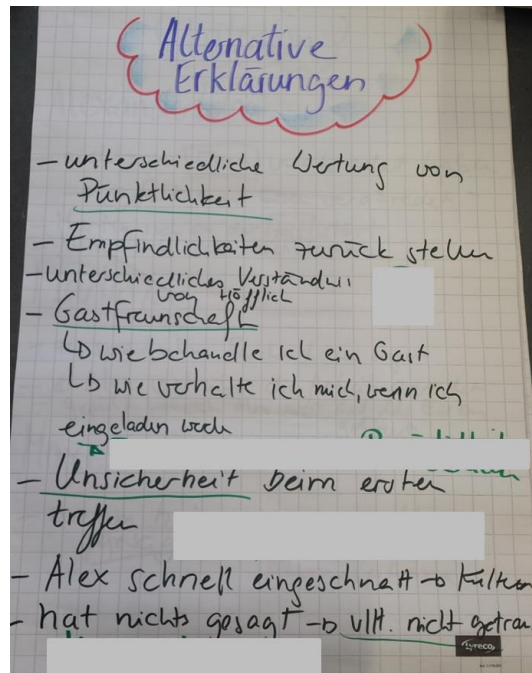 Alternative
Erklärungen
- unterschiedliche Wertung von
Pünktlichkeit
- Empfindlichkeiten zurück stellen
- unterschiedliches Verständnis
von Höflich
- Gastfraunschaft
↳ wie behandle ich ein Gast
↳ wie verhalte ich mich, wenn ich
eingeladen
- Unsicherheit beim ersten
treffen
- Alex schnell eingeschnatt →
- hat nichts gesagt → vllt. nicht getrau
Lyreco